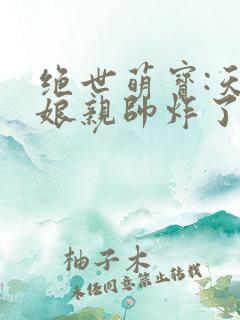 绝世萌宝:天
娘亲帅炸了
柚子木
未经同意禁止转载